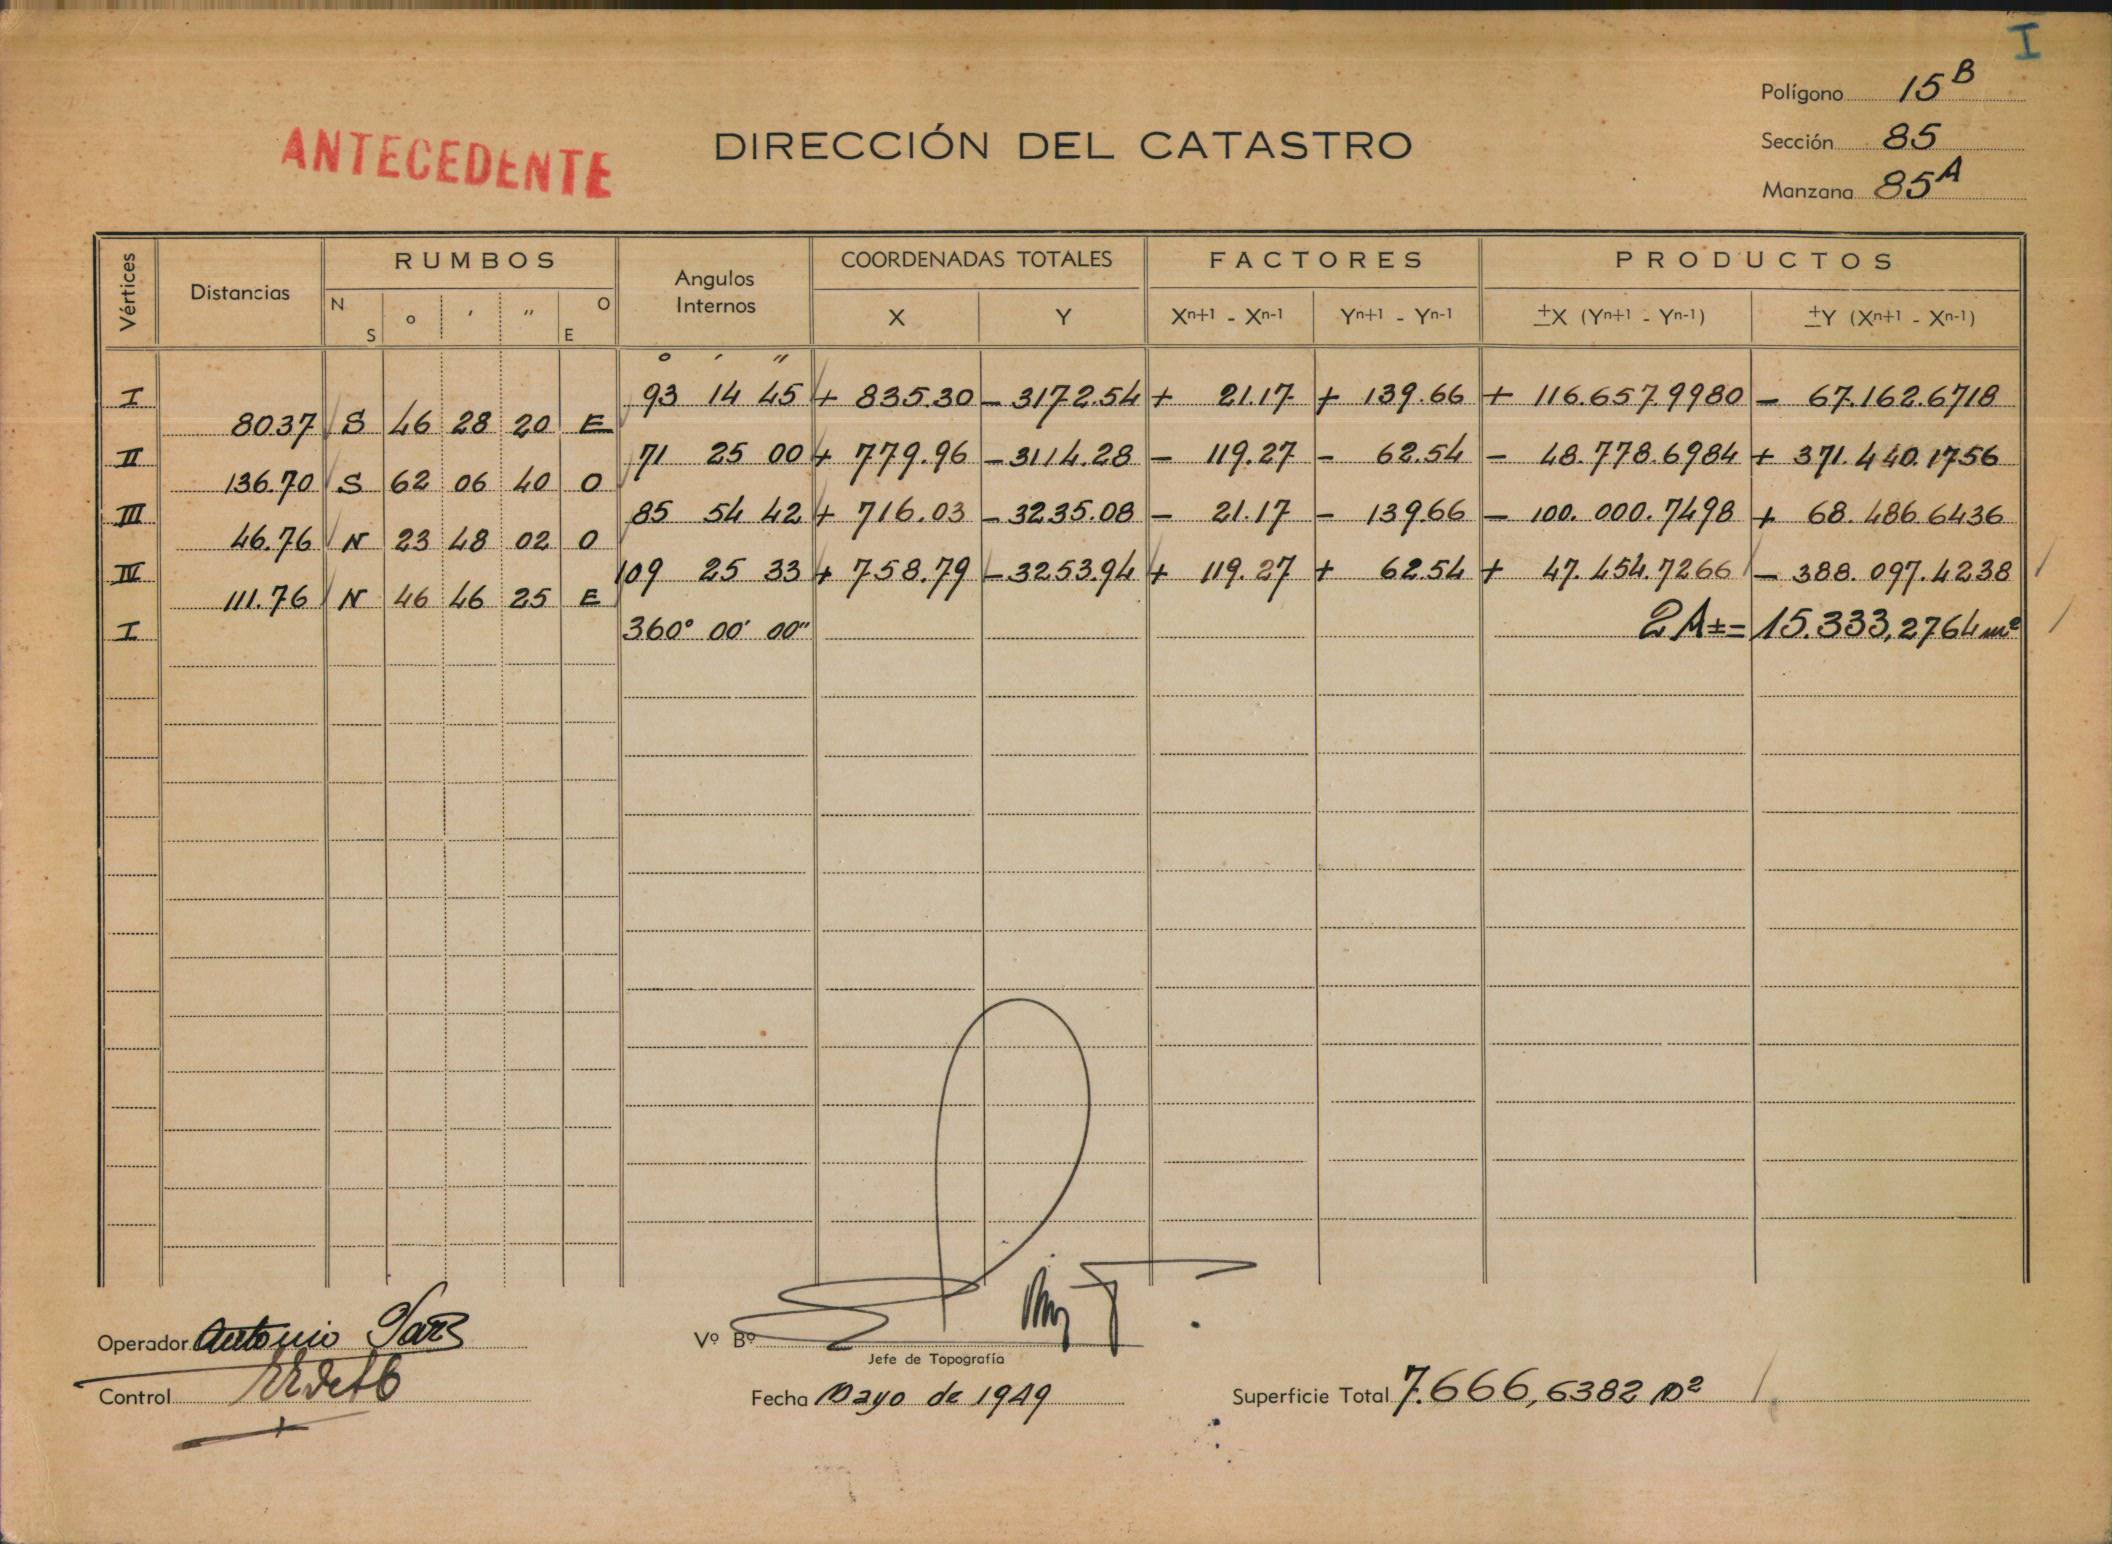 I
Polígono 15 B
ANTECEDENTE
DIRECCIÓN DEL CATASTRO
Sección 85
Manzana 85 A
Vértices Distancias RUMBOS Angulos Internos COORDENADAS TOTALES FACTORES PRODUCTOS
N S ° ' " O E X Y Xn+1 - Xn-1 Yn+1 - Yn-1 ±X (Yn+1 - Yn-1) ±Y (Xn+1 - Xn-1)
° ' "
I 93 14 45 + 835.30 - 3172.54 + 21.17 + 139.66 + 116.657.9980 - 67.162.6718
80.37 S 46 28 20 E
II 71 25 00 + 779.96 - 3114.28 - 119.27 - 62.54 - 48.778.6984 + 371.440.1756
136.70 S 62 06 40 O
III 85 54 42 + 716.03 - 3235.08 - 21.17 - 139.66 - 100.000.7498 + 68.486.6436
46.76 N 23 48 02 O
IV 109 25 33 + 758.79 - 3253.94 + 119.27 + 62.54 + 47.454.7266 - 388.097.4238
111.76 N 46 46 25 E
I 360° 00' 00" 2A ± = 15.333,2764 m²
Operador Antonio
Vº Bº
Jefe de Topografía
Control
Fecha Mayo de 1949
Superficie Total 7.666,6382 m²